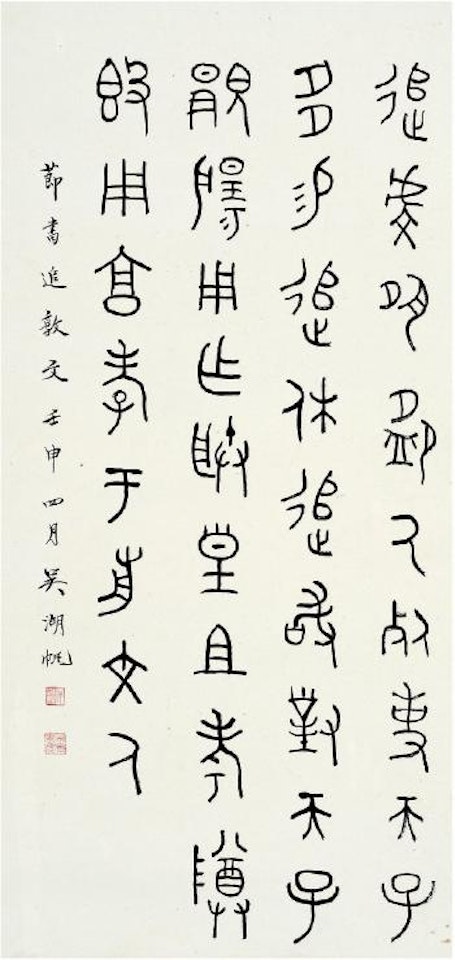 追虔夙夕卹厥死事天子
多易追休追敢對天子
顯揚用作朕皇且考尊
簋用享孝于前文人
節書追敦文壬申四月吳湖帆